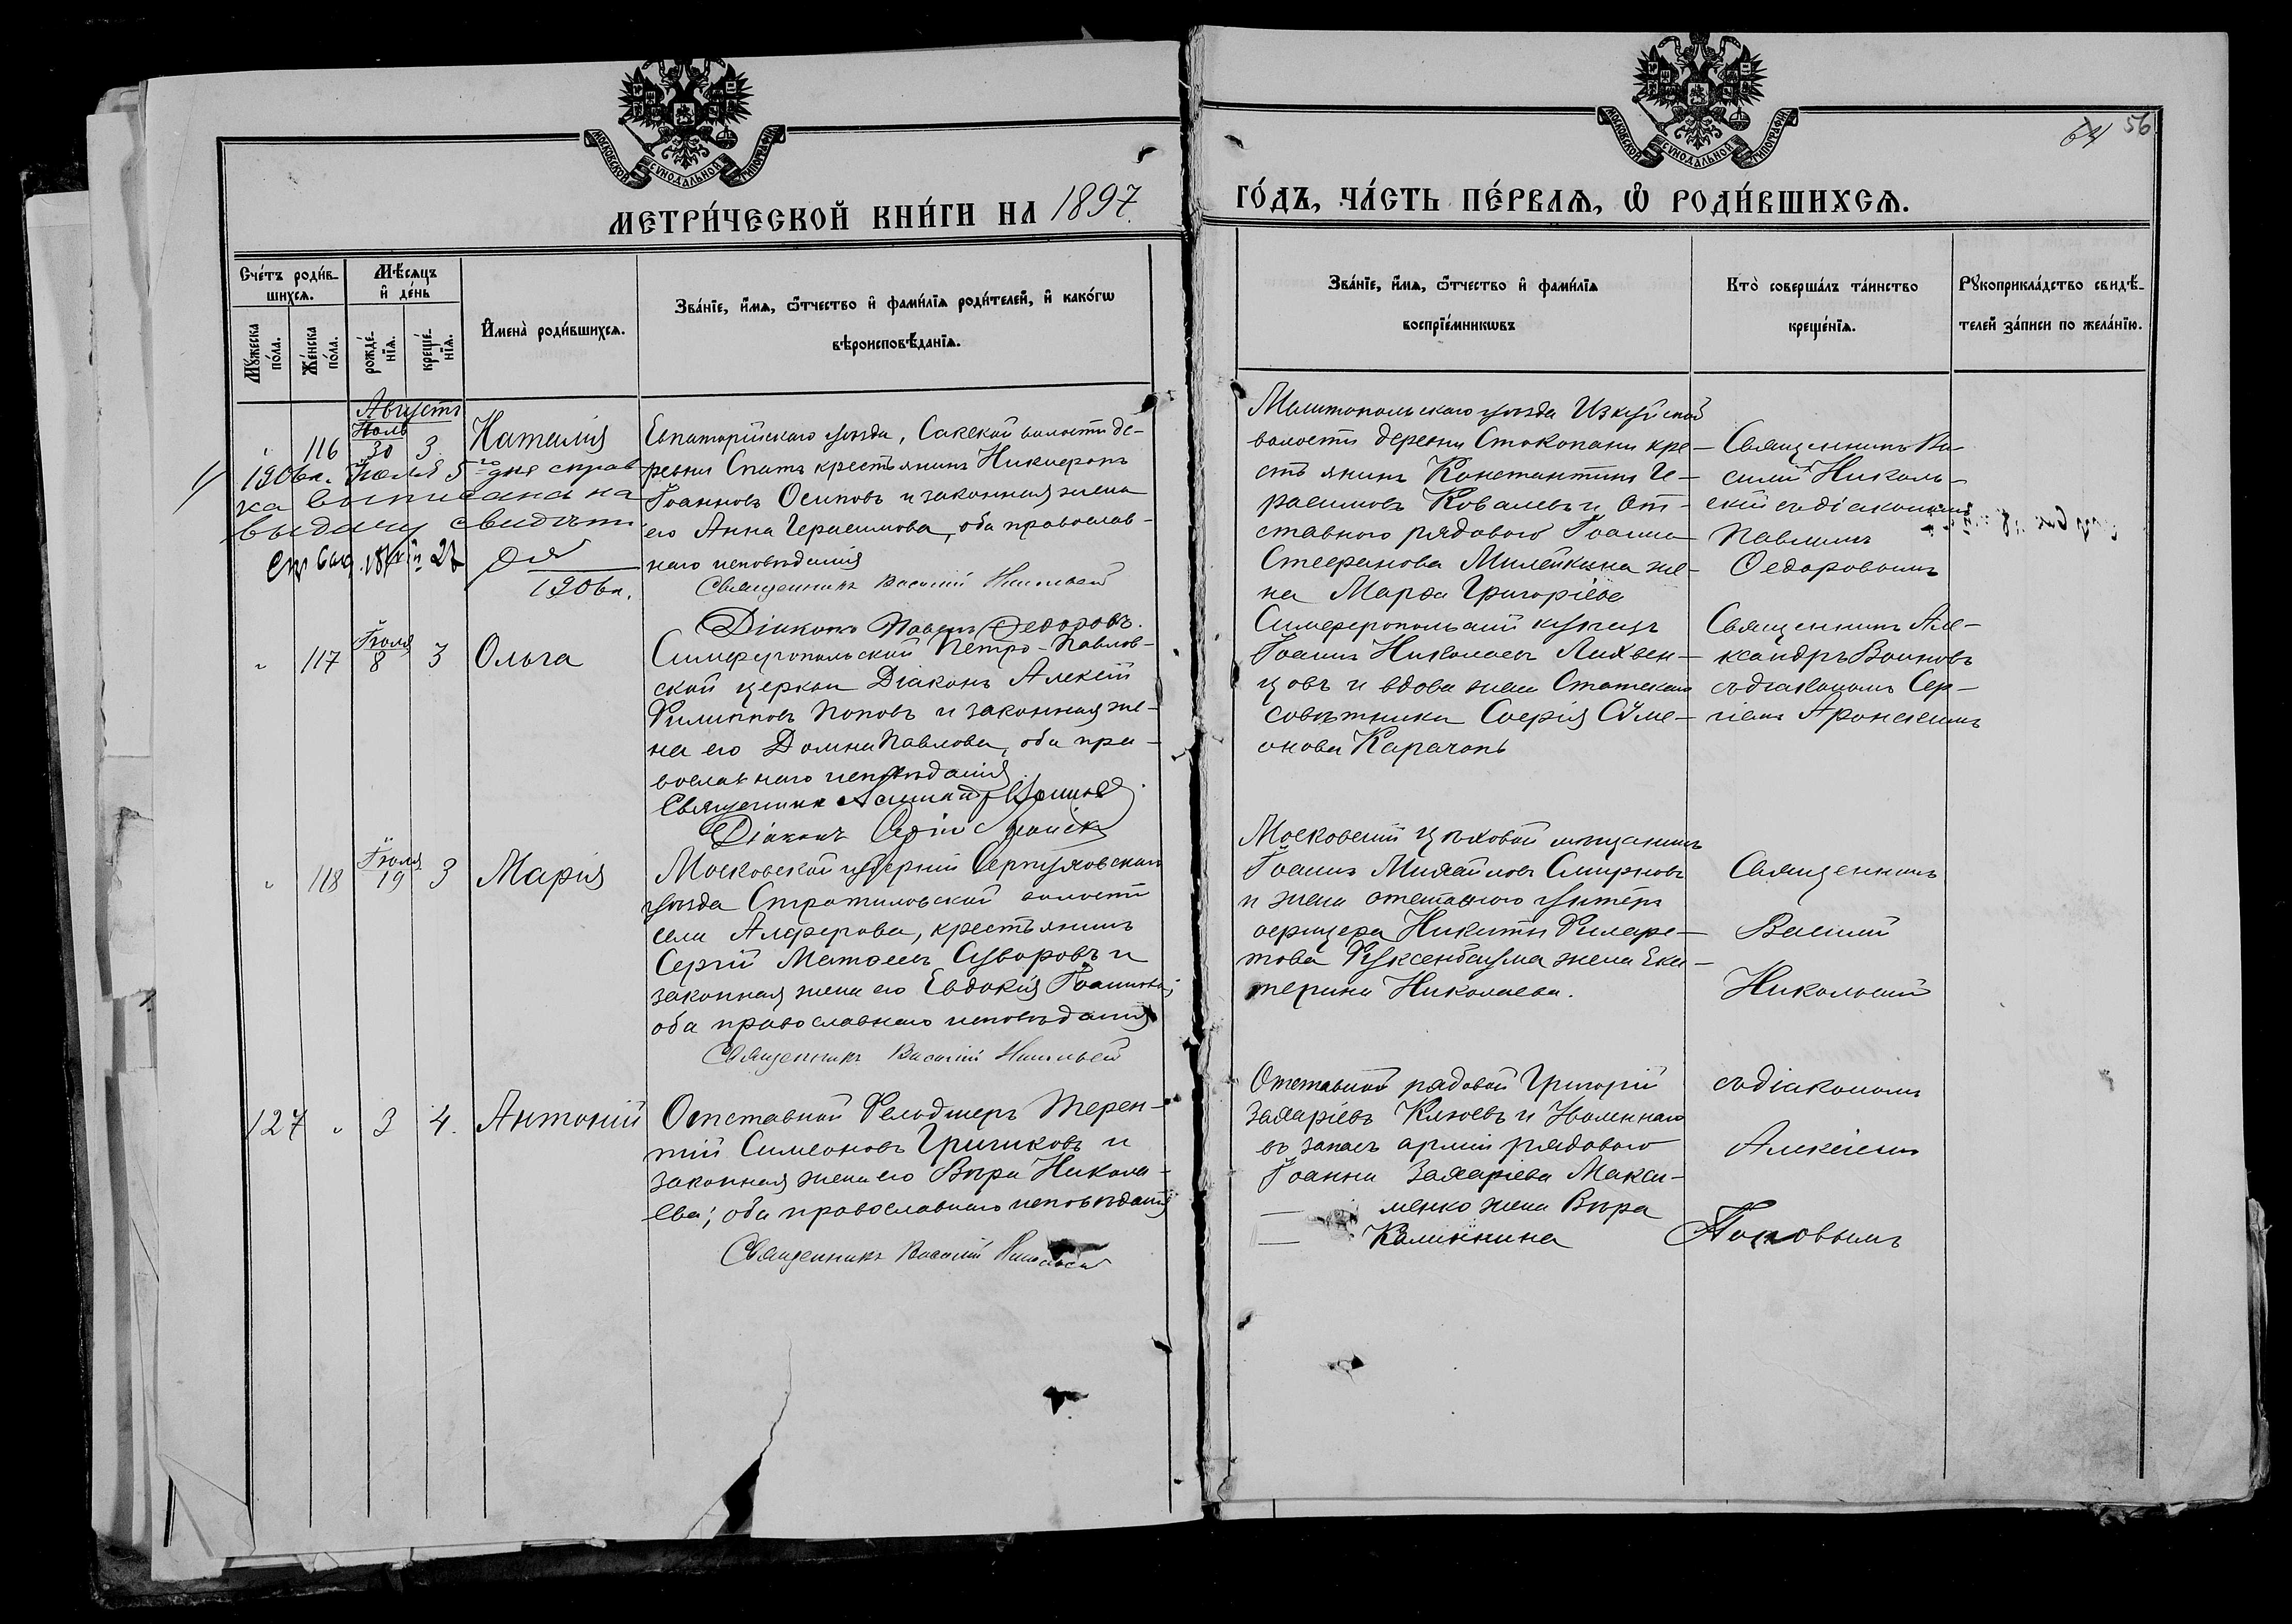 МОСКОВСКОЙ СѴНОДАЛЬНОЙ ТИПОГРАФІИ
МЕТРИ́ЧЕСКОЙ КНИ́ГИ НА 1897
Сче́тъ роди́в-
шихсѧ.
Мѣ́сѧцъ
и҆ де́нь
Мꙋ́жеска по́ла.
Же́нска по́ла.
рожде́-
нїѧ.
креще́-
нїѧ.
И҆мена̀ роди́вшихсѧ.
Зва́нїе, и҆́мѧ, ѻ҆́тчество и҆ фами́лїѧ роди́телей, и҆ како́гѡ
вѣроисповѣ́данїѧ.
Августъ
Іюль
" 116 30 3 Наталія
Евпаторійскаго уѣзда, Сакской волости де-
ревни Спатъ крестьянинъ Никифоръ
Іоанновъ Осиповъ и законная жена
его Анна Герасимова, оба православ-
наго исповѣданія
1906 г. Іюля 5 дня справ
ка выписана на
выдачу свидѣт
1906 г.
Священникъ Василій Никольскій
Діаконъ Павелъ Ѳедоровъ.
Іюля
" 117 8 3 Ольга
Симферопольской Петро-Павлов-
ской церкви Діаконъ Алексѣй
Филипповъ Поповъ и законная же-
на его Домна Павлова, оба пра-
вославнаго исповѣданія
Священникъ Александръ Воиновъ
Діаконъ Сергій
Іюля
" 118 19 3 Марія
Московской губерніи Серпуховскаго
уѣзда Стратиловской волости
села Алферова, крестьянинъ
Сергій Матѳеевъ Суворовъ и
законная жена его Евдокія Іоаннова;
оба православнаго исповѣданія
Священникъ Василій Никольскій
127 " 3 4. Антоній
Отставной Фельдшеръ Терен-
тій Симеоновъ Гричиковъ и
законная жена его Вѣра Никола-
ева; оба православнаго исповѣданія
Священникъ Василій Никольскій
МОСКОВСКОЙ СѴНОДАЛЬНОЙ ТИПОГРАФІИ
64 56
ГО́ДЪ, ЧА́СТЬ ПЕ́РВАѦ, Ѡ҆ РОДИ́ВШИХСѦ.
Зва́нїе, и҆́мѧ, ѻ҆́тчество и҆ фами́лїѧ
воспрїе́мникѡвъ
Кто̀ соверша́лъ та́инство
креще́нїѧ.
Рꙋкоприкла́дство свидѣ́-
телей за́писи по жела́нїю.
Мелитопольскаго уѣзда
волости деревни Стокопани кре-
стьянинъ Константинъ Ге-
расимовъ Ковалевъ и от-
ставного рядового Іоанна
Стефанова Милейкина же-
на Марѳа Григоріева
Священникъ Ва-
силій Николь-
скій съ діакономъ
Павломъ
Ѳедоровымъ
Симферопольскій купецъ
Іоаннъ Николаевъ Лихвен-
цовъ и вдова жена Статскаго
совѣтника Софія Сѵме-
онова Карачонъ
Священникъ Але-
ксандръ Воиновъ
съ діакономъ Сер-
гіемъ
Московскій цѣховой мѣщанинъ
Іоаннъ Михайловъ Смирновъ
и жена отставного унтеръ
офицера Никиты Филаре-
това Фуксенбаума жена Ека-
терина Николаева.
Священникъ
Василій
Никольскій
Отставной рядовой Григорій
Захаріевъ Клюевъ и Уволеннаго
въ запасъ арміи рядового
Іоанна Захаріева Макси-
менко жена Вѣра
Калинина
съ діакономъ
Алексіемъ
Поповымъ